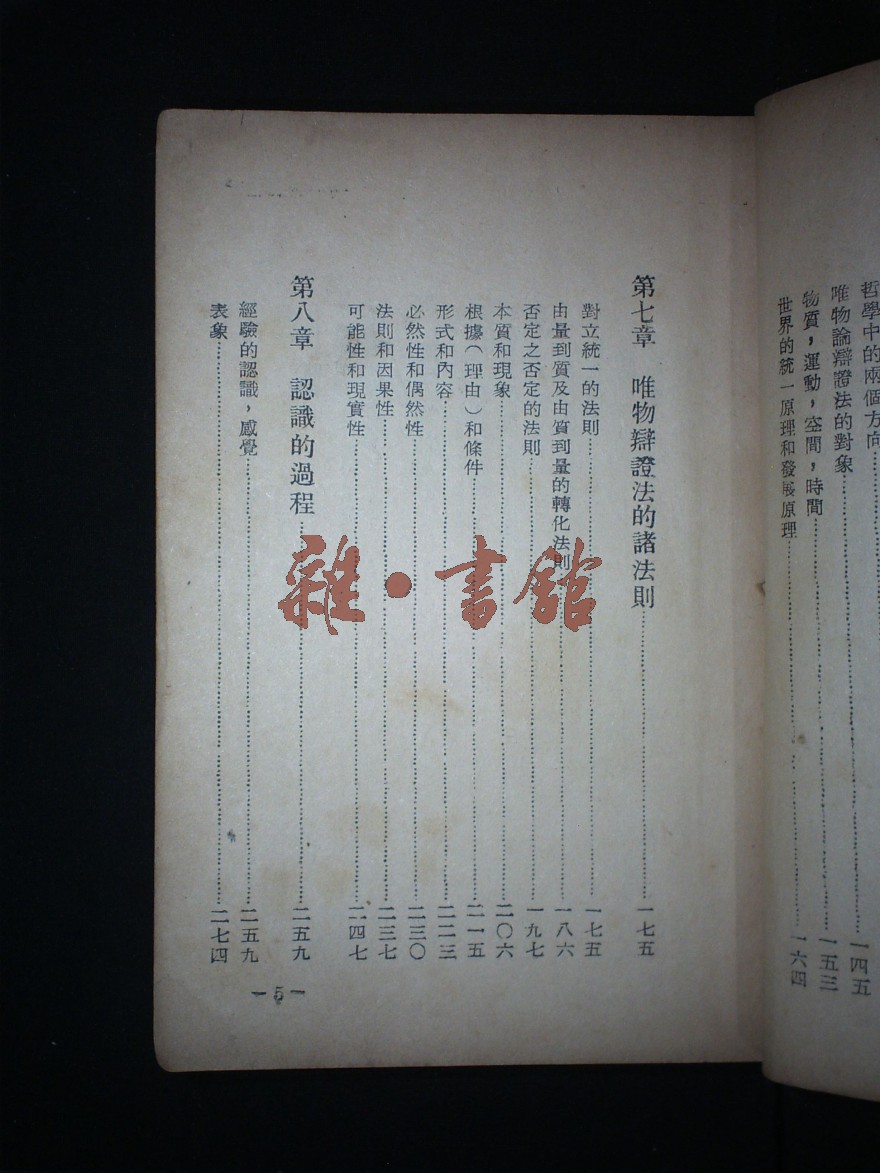 哲學中的兩個方向
唯物論辯證法的對象……一四五
物質，運動，空間，時間……一五三
世界的統一原理和發展原理……一六四
第七章　唯物辯證法的諸法則……一七五
對立統一的法則……一七五
由量到質及由質到量的轉化法則……一八六
否定之否定的法則……一九七
本質和現象……二〇六
根據（理由）和條件……二一五
形式和內容……二二三
必然性和偶然性……二三〇
法則和因果性……二三七
可能性和現實性……二四七
第八章　認識的過程……二五九
經驗的認識，感覺……二五九
表象……二七四
—5—
雜·書館